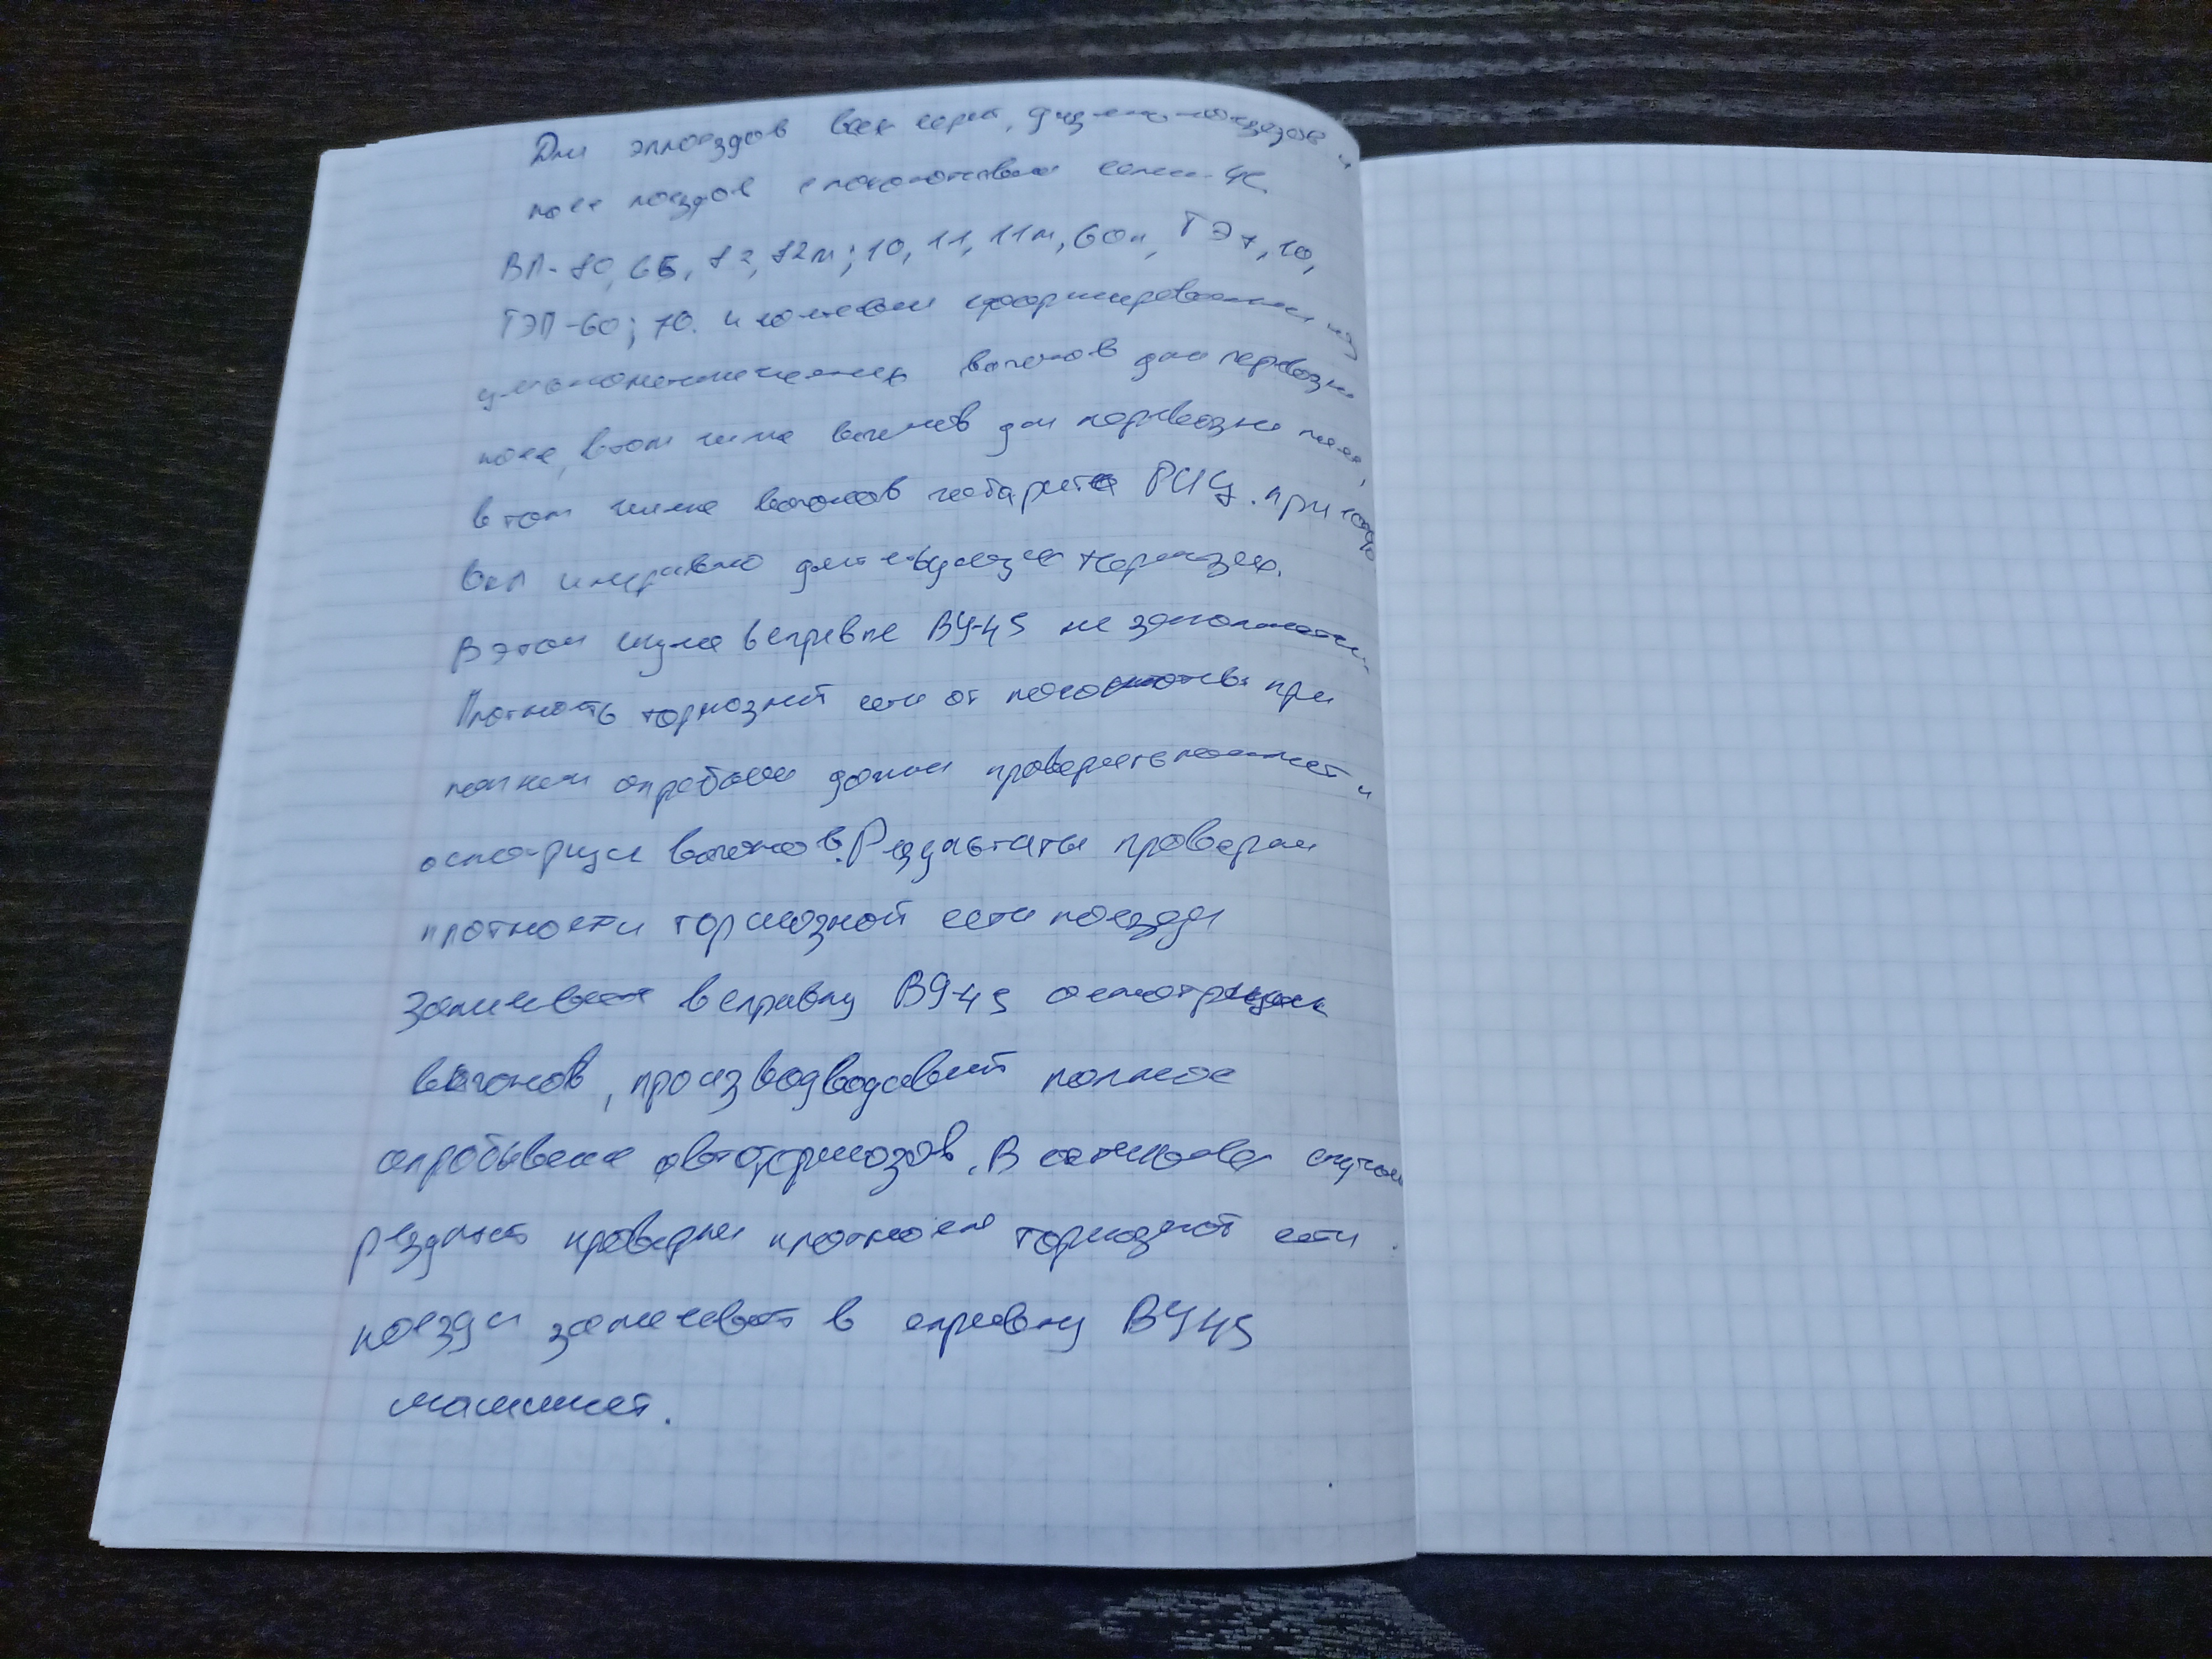 Для эл.поездов всех серий, дизель-поездов и
пасс поездов с локомотивами серии ЧС
ВП-80, 65, 82, 82м; 10, 11, 11м, 60к, ТЭ7, 10,
ТЭП-60; 70. и составом сформированным из
цельнометаллических вагонов для перевозки
пасс, в том числе вагонов для перевозки пасс,
в том числе вагонов габарита РИЦ. при
всп исправно действующих тормозах.
В этом случае в справке ВУ-45 не
Плотность тормозной сети от локомотива при
полном опробов должны проверить машинист и
осмотрщи вагонов. Результаты проверки
плотности тормозной сети поезда
записывает в справку ВУ-45 осмотрщик
вагонов, производводивший полное
опробывание автотормозов. В остальных случаях
результ проверки плотности тормозной сети
поезда записывает в справку ВУ45
машинист.